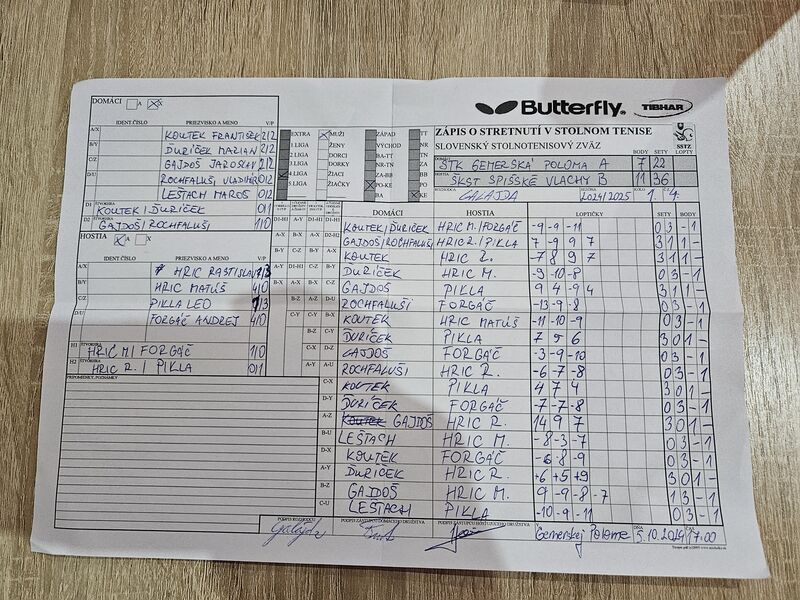 Butterfly TIBHAR
DOMÁCI A X
IDENT.ČÍSLO PRIEZVISKO A MENO V/P
A/X KOUTEK FRANTIŠEK 2/2
B/Y ĎURIČEK MARIAN 2/2
C/Z GAJDOŠ JAROSLAV 2/2
D/U ROCHFALUŠI VLADIMÍR 0/2
LEŠTACH MAROŠ 0/2
D1 ŠTVORHRA KOUTEK / ĎURIČEK 0/1
D2 ŠTVORHRA GAJDOŠ / ROCHFALUŠI 1/0
HOSTIA X A X
IDENT.ČÍSLO PRIEZVISKO A MENO V/P
A/X HRIC RASTISLAV 1/3
B/Y HRIC MATÚŠ 4/0
C/Z PIKLA LEO 1/3
D/U FORGÁČ ANDREJ 4/0
H1 ŠTVORHRA HRIC M / FORGÁČ 1/0
H2 ŠTVORHRA HRIC R. / PIKLA 0/1
PRIPOMIENKY, POZNÁMKY
EXTRA X MUŽI ZÁPAD TT
1 LIGA ŽENY VÝCHOD NR
2 LIGA DORCI BA-TT TN
3 LIGA DORKY NR-TN ZA
4 LIGA ŽIACI ZA-BB BB
5 LIGA ŽIAČKY PO-KE PO
BA KE
ZÁPIS O STRETNUTÍ V STOLNOM TENISE
SLOVENSKÝ STOLNOTENISOVÝ ZVÄZ
SSTZ
BODY SETY LOPTY
DOMÁCI STK GEMERSKÁ POLOMA A 7 22
HOSTIA ŠKST SPIŠSKÉ VLACHY B 11 36
GALAJDA 2024/2025 1. 4.
DOMÁCI HOSTIA LOPTIČKY SETY BODY
D1-H1 KOUTEK / ĎURIČEK HRIC M. / FORGÁČ -9 -9 -11 03 -1
GAJDOŠ / ROCHFALUŠI HRIC R. / PIKLA 7 -9 9 7 31 1-
KOUTEK HRIC R. -7 8 9 7 31 1-
ĎURIČEK HRIC M. -9 -10 -8 03 -1
GAJDOŠ PIKLA 9 4 -9 4 31 1-
ROCHFALUŠI FORGÁČ -13 -9 -8 03 -1
KOUTEK HRIC MATÚŠ -11 -10 -9 03 -1
ĎURIČEK PIKLA 7 5 6 30 1-
GAJDOŠ FORGÁČ -3 -9 -10 03 -1
ROCHFALUŠI HRIC R. -6 -7 -8 03 -1
C-X KOUTEK PIKLA 4 7 4 30 1-
D-Y ĎURIČEK FORGÁČ -7 -7 -8 03 -1
A-Z KOUTEK GAJDOŠ HRIC R. 14 9 7 30 1-
B-U LEŠTACH HRIC M. -8 -3 -7 03 -1
D-X KOUTEK FORGÁČ -6 -8 -9 03 -1
A-Y ĎURIČEK HRIC R +6 +5 +9 30 1-
B-Z GAJDOŠ HRIC M. 9 -9 -8 -7 13 -1
C-U LEŠTACH PIKLA -10 -9 -11 03 -1
PODPIS ROZHODCU PODPIS ZÁSTUPCU DOMÁCEHO DRUŽSTVA PODPIS ZÁSTUPCU HOSŤUJÚCEHO DRUŽSTVA
Galajda Gemerskej Polome DŇA 5.10.2024 17.00